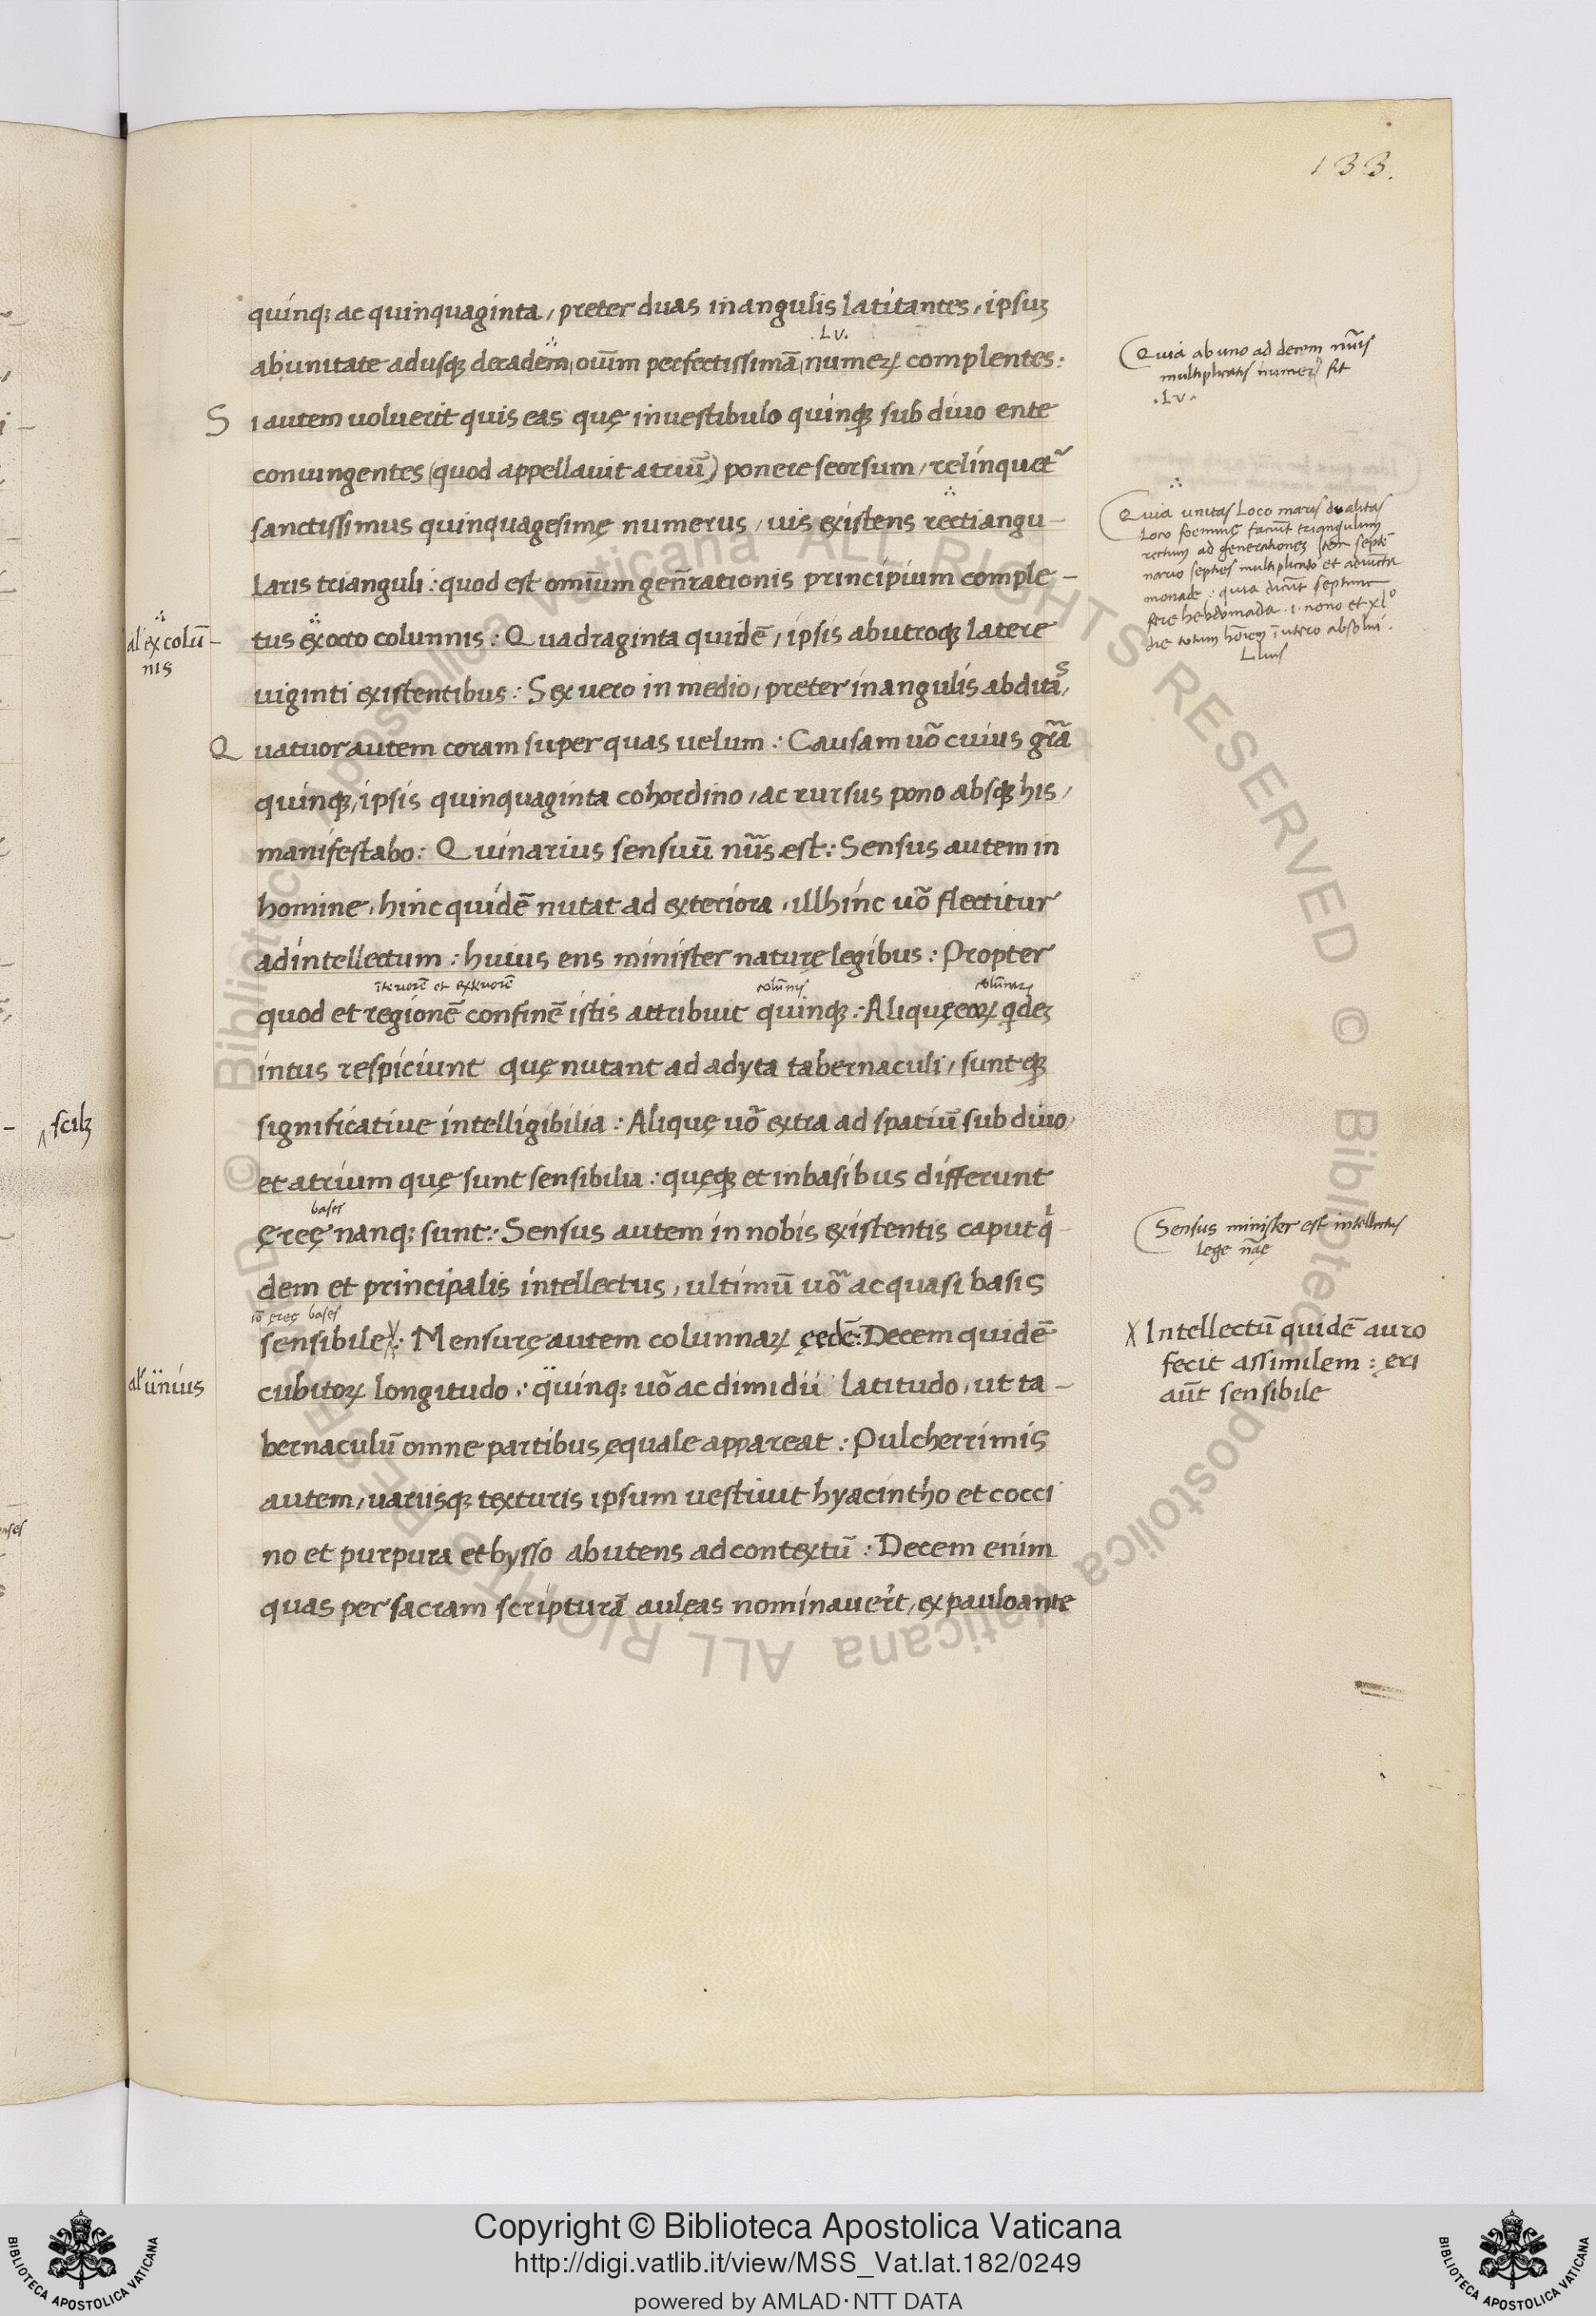 133.
quinq; ac quinquaginta, preter duas in angulis latitantes, ipsuȝ
.Lv.
ab unitate adusqȝ decadem, oīum perfectissimā, numeꝝ complentes:
Si autem uoluerit quis eas quę in uestibulo quinqȝ sub diuo ente
coniungentes (quod appellauit atriū) ponere seorsum, relinquet᷒
sanctissimus quinquagesimę numerus, uis existens rectiangu-
laris trianguli: quod est omīum gen̄rationis principium comple-
tus ex octo colunnis: Quadraginta quidē, ipsis ab utroqȝ latere
uiginti existentibus: Sex uero in medio, preter in angulis abditas,
Quatuor autem coram super quas uelum: Causam uō cuius grā
quinqȝ, ipsis quinquaginta cohordino, ac rursus pono absqȝ his,
manifestabo: Quinarius sensuū nūs est: Sensus autem in
homine, hinc quidē nutat ad exteriora, illhinc uō flectitur
ad intellectum: huius ens minister naturę legibus: Propter
īteriorē et exteriorē colūnis colūnaꝝ
quod et regionē confinē istis attribuit quinqȝ: Alique eoꝝ qdeȝ
intus respiciunt quę nutant ad adyta tabernaculi, suntqȝ
significatiue intelligibilia: Alique uō extra ad spatiū sub diuo,
et atrium quę sunt sensibilia: quęqȝ et in basibus differunt
bases
ęreę nanq; sunt: Sensus autem in nobis existentis caput qi-
dem et principalis intellectus, ultimū uō ac quasi basis
iō ęreę bases
sensibile: Mensurę autem colunnaꝝ ęędē: Decem quidē
cubitoꝝ longitudo: quinq; uō ac dimidii latitudo, ut ta-
bernaculū omne partibus ęquale appareat: Pulcherrimis
autem, uariisq; texturis ipsum uestiuit hyacintho et cocci
no et purpura et bysso abutens ad contextū: Decem enim
quas per sacram scripturā aulęas nominauerit, ex pauloante
al' ex colū-
nis
al' unius
scilȝ
Quia ab uno ad decem nūis
multiplicatis numer fit
.Lv.
Quia unitas loco maris dualitas
loco foeminę faciūt triangulum
rectum ad generationeȝ Itē septe
nario septies multiplicato et adiuncta
monade: quia dicūt septima
fere hebdomada .i. nono et xlo
die totum hoīem ī utero absolui.
Lilius
Sensus minister est intellectus
lege nāę
Intellectū quidē auro
fecit assimilem: ęri
aūt sensibile
Copyright © Biblioteca Apostolica Vaticana
http://digi.vatlib.it/view/MSS_Vat.lat.182/0249
powered by AMLAD·NTT DATA
BIBLIOTECA APOSTOLICA VATICANA
BIBLIOTECA APOSTOLICA VATICANA